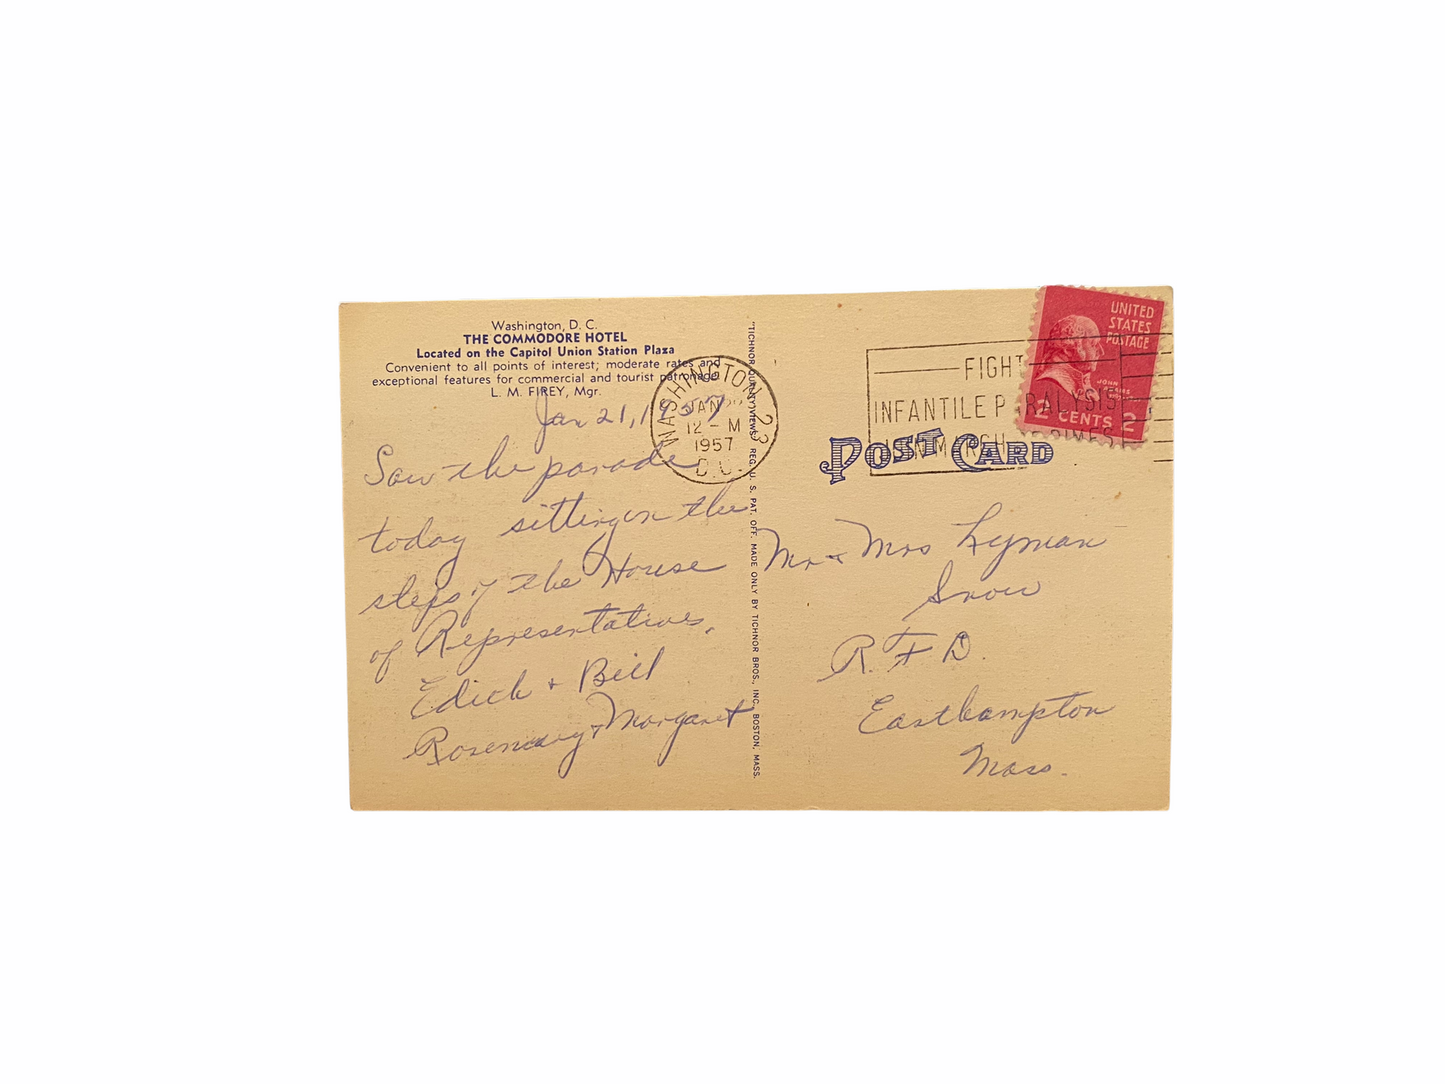 Washington, D. C.
THE COMMODORE HOTEL
Located on the Capitol Union Station Plaza
Convenient to all points of interest; moderate rates and
exceptional features for commercial and tourist patronage
L. M. FIREY, Mgr.
Jan 21, 1957
Saw the parade
today sitting on the
steps of the House
of Representatives.
Edith + Bill
Rosemary + Margaret
WASHINGTON 23
JAN
12 - M
1957
D.C.
"TICHNOR QUALITY VIEWS," REG. U. S. PAT. OFF. MADE ONLY BY TICHNOR BROS., INC., BOSTON, MASS.
UNITED
STATES
POSTAGE
JOHN
ADAMS
2 CENTS 2
FIGHT
INFANTILE PARALYSIS
JOIN MARCH OF DIMES
POST CARD
Mr + Mrs Lyman
Snow
R. F D.
Easthampton
Mass.